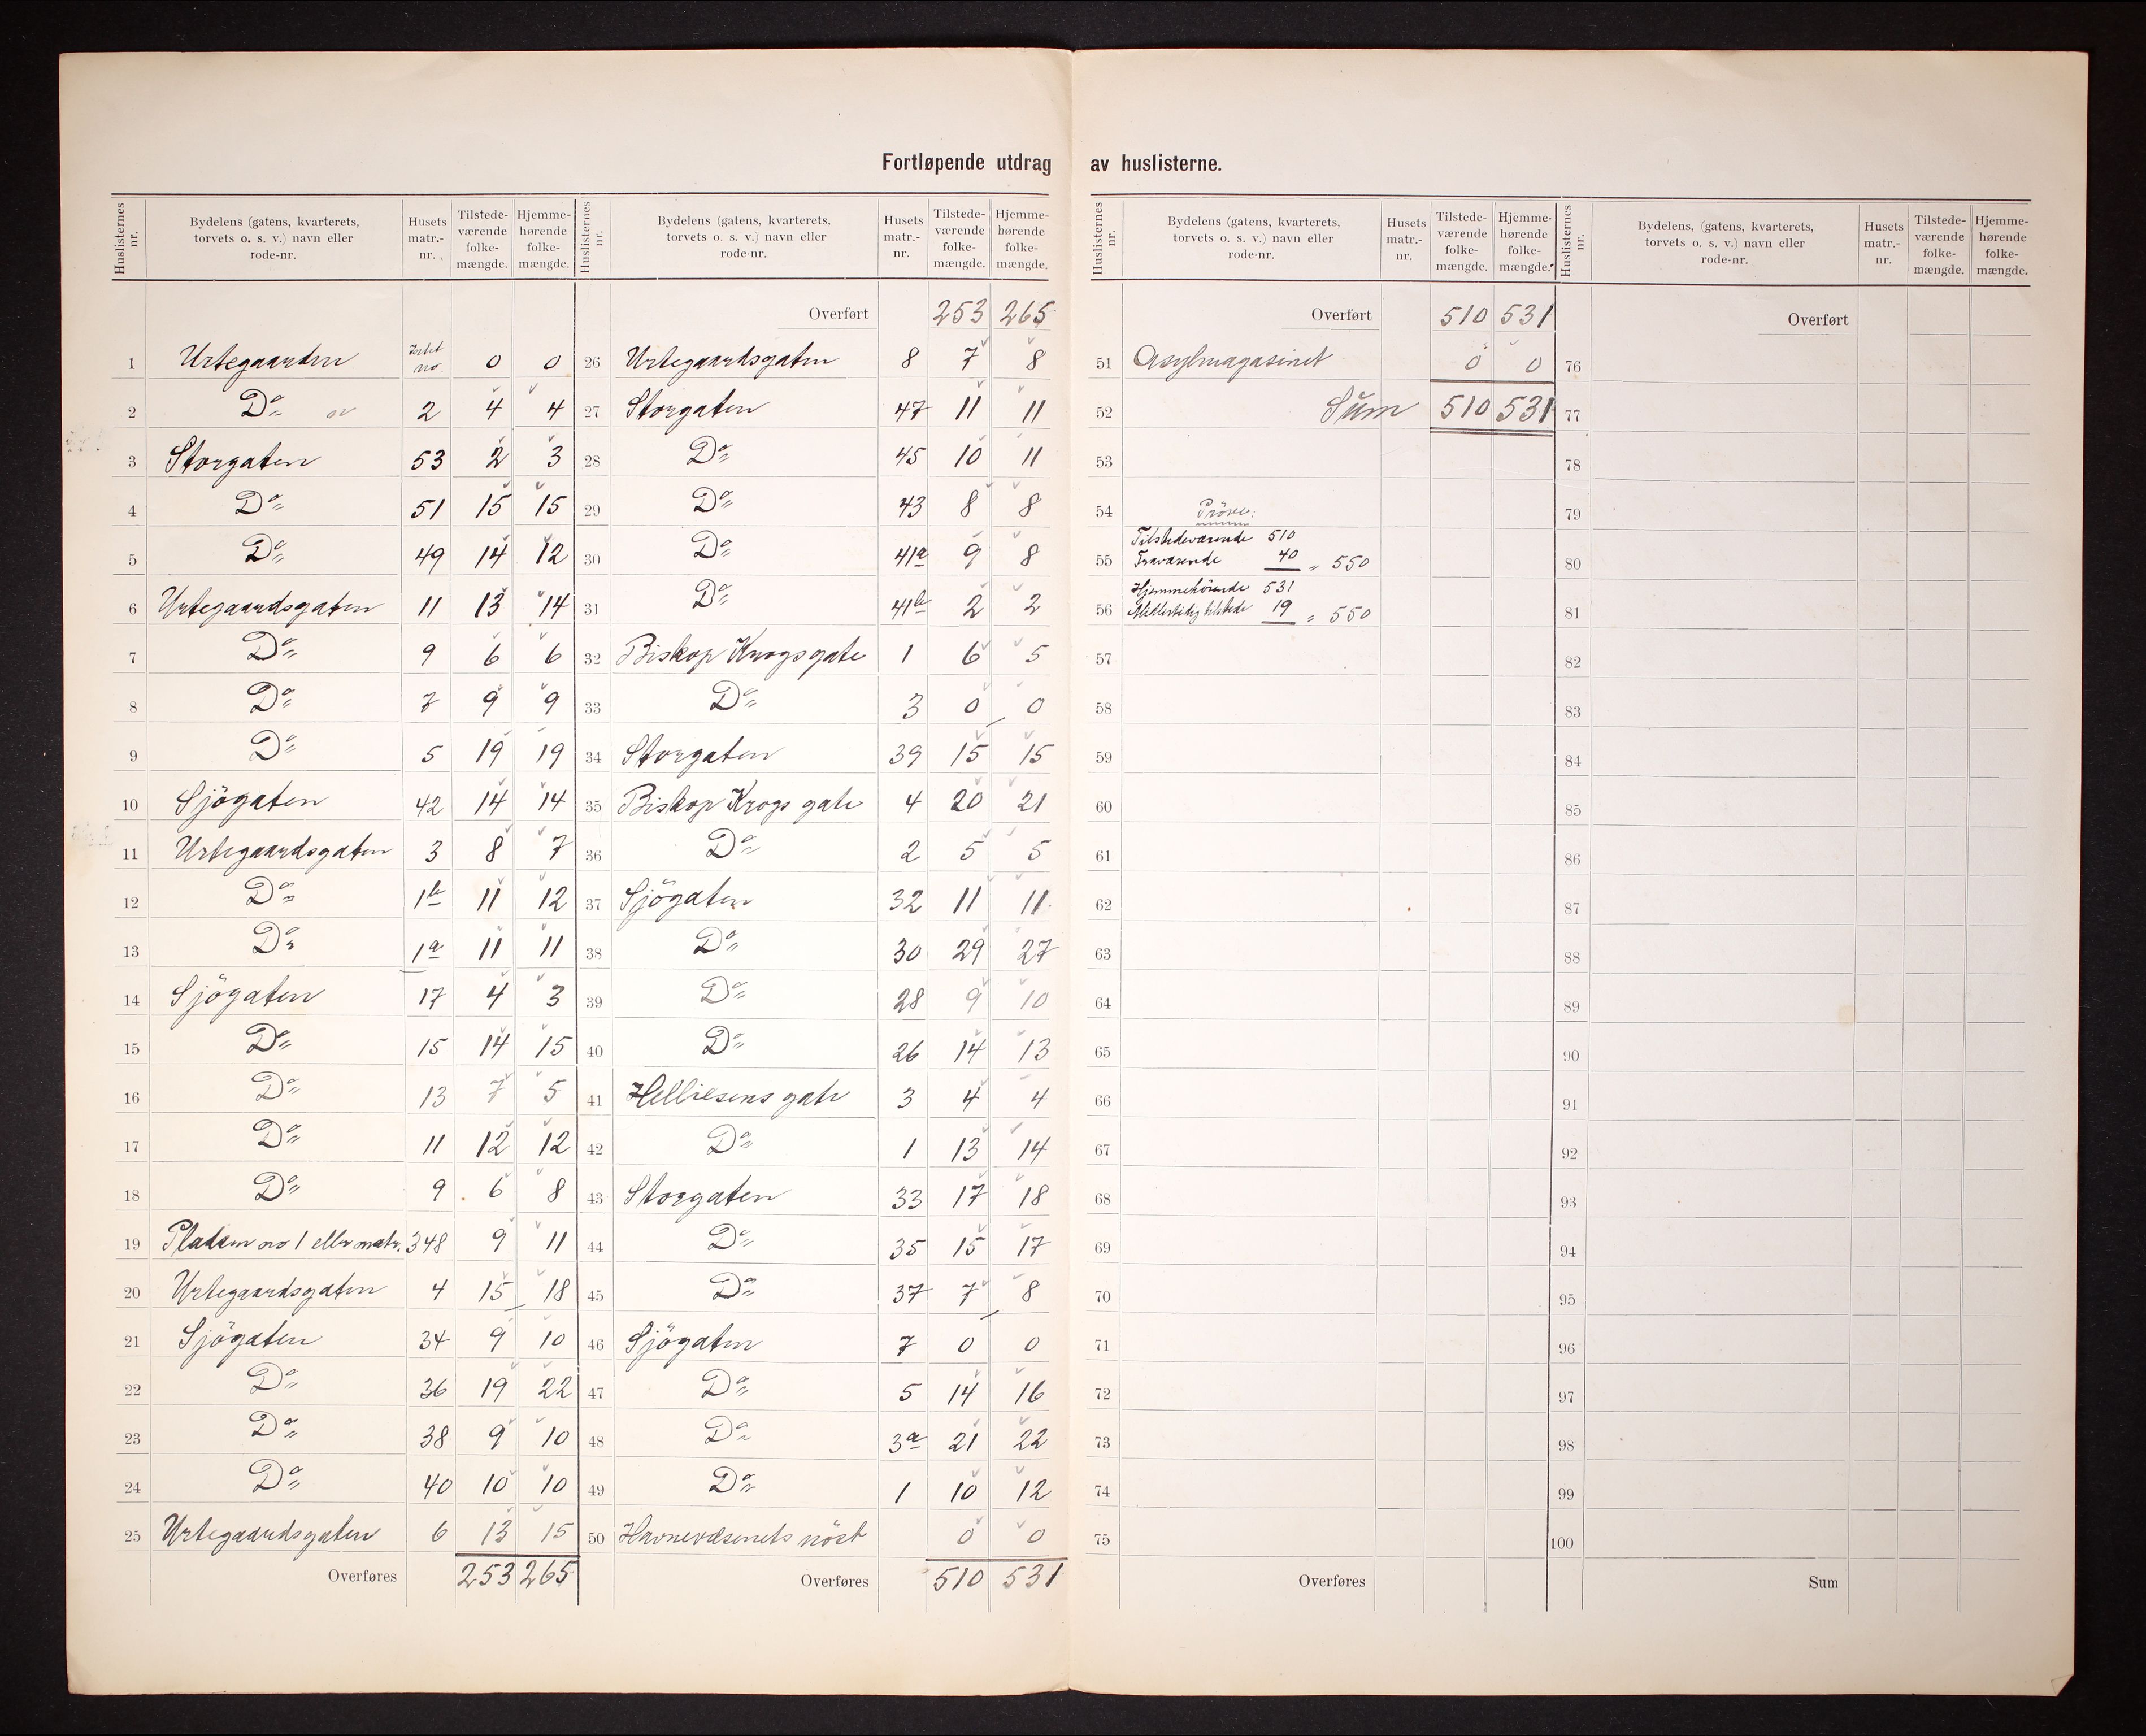 Fortløpende utdrag av huslisterne.
Huslisternes nr. | Bydelens (gatens, kvarterets, torvets o. s. v.) navn eller rode-nr. | Husets matr.-nr. | Tilstedeværende folkemængde. | Hjemmehørende folkemængde.
1 Urtegaarden intet no 0 0
2 Do 2 4 4
3 Storgaten 53 2 3
4 Do 51 15 15
5 Do 49 14 12
6 Urtegaardsgaten 11 13 14
7 Do 9 6 6
8 Do 7 9 9
9 Do 5 19 19
10 Sjögaten 42 14 14
11 Urtegaardsgaten 3 8 7
12 Do 1b 11 12
13 Do 1a 11 11
14 Sjögaten 17 4 3
15 Do 15 14 15
16 Do 13 7 5
17 Do 11 12 12
18 Do 9 6 8
19 Pladsen no 1 eller matr. 348 9 11
20 Urtegaardsgaten 4 15 18
21 Sjögaten 34 9 10
22 Do 36 19 22
23 Do 38 9 10
24 Do 40 10 10
25 Urtegaardsgaten 6 13 15
Overføres 253 265
Huslisternes nr. | Bydelens (gatens, kvarterets, torvets o. s. v.) navn eller rode-nr. | Husets matr.-nr. | Tilstedeværende folkemængde. | Hjemmehørende folkemængde.
Overført 253 265
26 Urtegaardsgaten 8 7 8
27 Storgaten 47 11 11
28 Do 45 10 11
29 Do 43 8 8
30 Do 41a 9 8
31 Do 41b 2 2
32 Biskop Krogsgate 1 6 5
33 Do 3 0 0
34 Storgaten 39 15 15
35 Biskop Krogs gate 4 20 21
36 Do 2 5 5
37 Sjögaten 32 11 11
38 Do 30 29 27
39 Do 28 9 10
40 Do 26 14 13
41 Helliesens gate 3 4 4
42 Do 1 13 14
43 Storgaten 33 17 18
44 Do 35 15 17
45 Do 37 7 8
46 Sjögaten 7 0 0
47 Do 5 14 16
48 Do 3a 21 22
49 Do 1 10 12
50 Havnevæsenets nöst 0 0
Overføres 510 531
Huslisternes nr. | Bydelens (gatens, kvarterets, torvets o. s. v.) navn eller rode-nr. | Husets matr.-nr. | Tilstedeværende folkemængde. | Hjemmehørende folkemængde.
Overført 510 531
51 Asylmagasinet 0 0
52 Sum 510 531
53
54 Pröve:
Tilstedeværende 510
55 Fraværende 40 = 550
Hjemmehörende 531
56 Midlertidig tilstede 19 = 550
57
58
59
60
61
62
63
64
65
66
67
68
69
70
71
72
73
74
75
Overføres
Huslisternes nr. | Bydelens (gatens, kvarterets, torvets o. s. v.) navn eller rode-nr. | Husets matr.-nr. | Tilstedeværende folkemængde. | Hjemmehørende folkemængde.
Overført
76
77
78
79
80
81
82
83
84
85
86
87
88
89
90
91
92
93
94
95
96
97
98
99
100
Sum